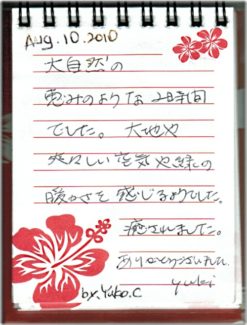 Aug.10.2010
大自然の
恵みのような 2時間
でした。 大地や
爽々しい空気や緑の
暖かさを感じるようでした。
癒されました。
ありがとうございました。
yuki
by.Yuko.C